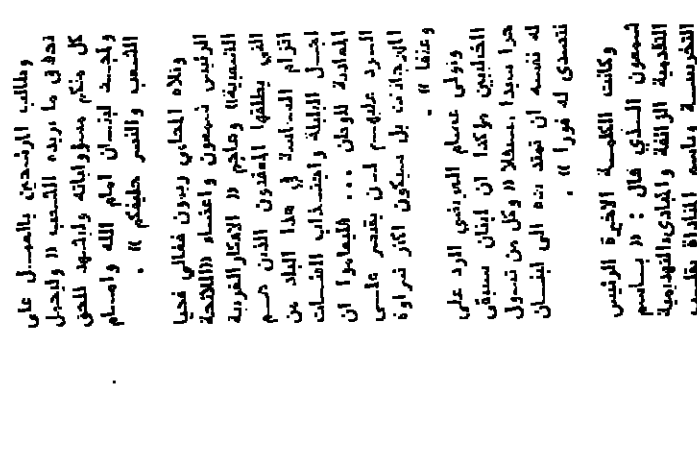 وطالب المرشحين بالعمـــل على
تحقيق ما يريده الشعب « وليحمل
كل منكم مسؤولياته وليشهد للحق
ولمجــد لبنــان امام الله وامــام
الشعب والنصر حليفكم » .
وتلاه المحامي ريمون فغالي فحيا
الرئيس شمعون واعضاء «اللائحة
الشعبية» وهاجم « الافكار الغريبة
التي يطلقها المعقدون الذين هــم
اقزام السياسة في هذا البلد من
اجـل البلبلة واجتــذاب الفئــات
المعادية للوطن ... فليعلموا ان
الــرد عليهــم لــن يقتصر علــى
المهرجانات بل سيكون اكثر شراوة
وعنفا » .
وتولى عصام العريضي الرد على
الخطيبين مؤكدا ان لبنان سيبقى
حرا سيدا مستقلا « وكل من تسول
له نفسه ان تمتد يده الى لبنــان
نتصدى له فورا » .
وكانت الكلمــة الاخيرة الرئيس
شمعون الــذي قال : « باســم
التقدمية الزائفة والمبادىء الهدامية
التخريبيــة وباسم المناداة بقلــب